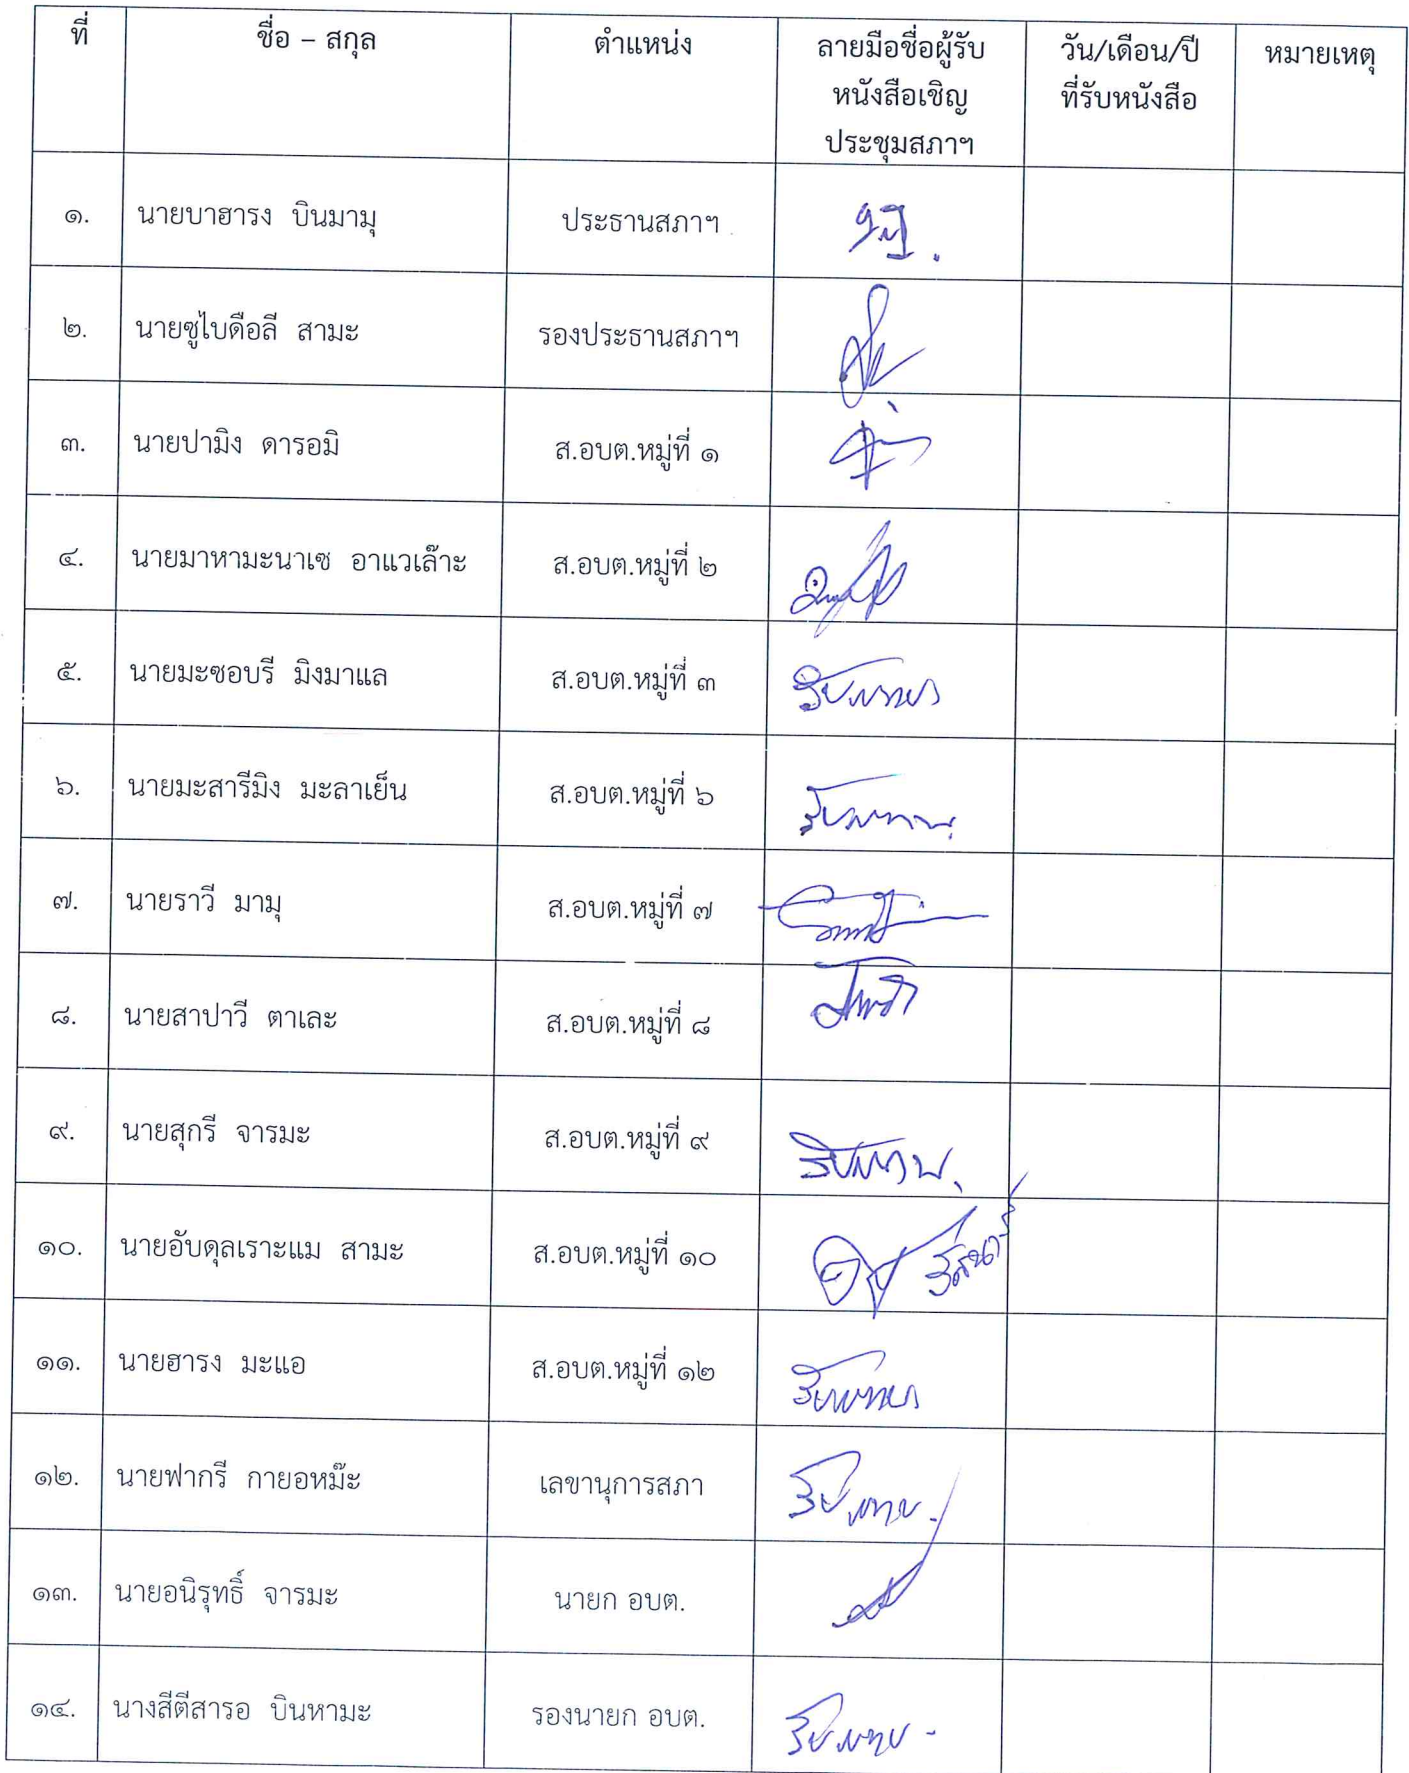 ที่ ชื่อ – สกุล ตำแหน่ง ลายมือชื่อผู้รับ วัน/เดือน/ปี หมายเหตุ
หนังสือเชิญ ที่รับหนังสือ
ประชุมสภาฯ
๑. นายบาฮารง บินมามุ ประธานสภาฯ
๒. นายซูไบดือลี สามะ รองประธานสภาฯ
๓. นายปามิง ดารอมิ ส.อบต.หมู่ที่ ๑
๔. นายมาหามะนาเซ อาแวเล๊าะ ส.อบต.หมู่ที่ ๒
๕. นายมะซอบรี มิงมาแล ส.อบต.หมู่ที่ ๓ รับทราบ
๖. นายมะสารีมิง มะลาเย็น ส.อบต.หมู่ที่ ๖ รับทราบ
๗. นายราวี มามุ ส.อบต.หมู่ที่ ๗
๘. นายสาปาวี ตาเละ ส.อบต.หมู่ที่ ๘
๙. นายสุกรี จารมะ ส.อบต.หมู่ที่ ๙ รับทราบ
๑๐. นายอับดุลเราะแม สามะ ส.อบต.หมู่ที่ ๑๐
๑๑. นายฮารง มะแอ ส.อบต.หมู่ที่ ๑๒ รับทราบ
๑๒. นายฟากรี กายอหม๊ะ เลขานุการสภา รับทราบ
๑๓. นายอนิรุทธิ์ จารมะ นายก อบต.
๑๔. นางสีตีสารอ บินหามะ รองนายก อบต. รับทราบ